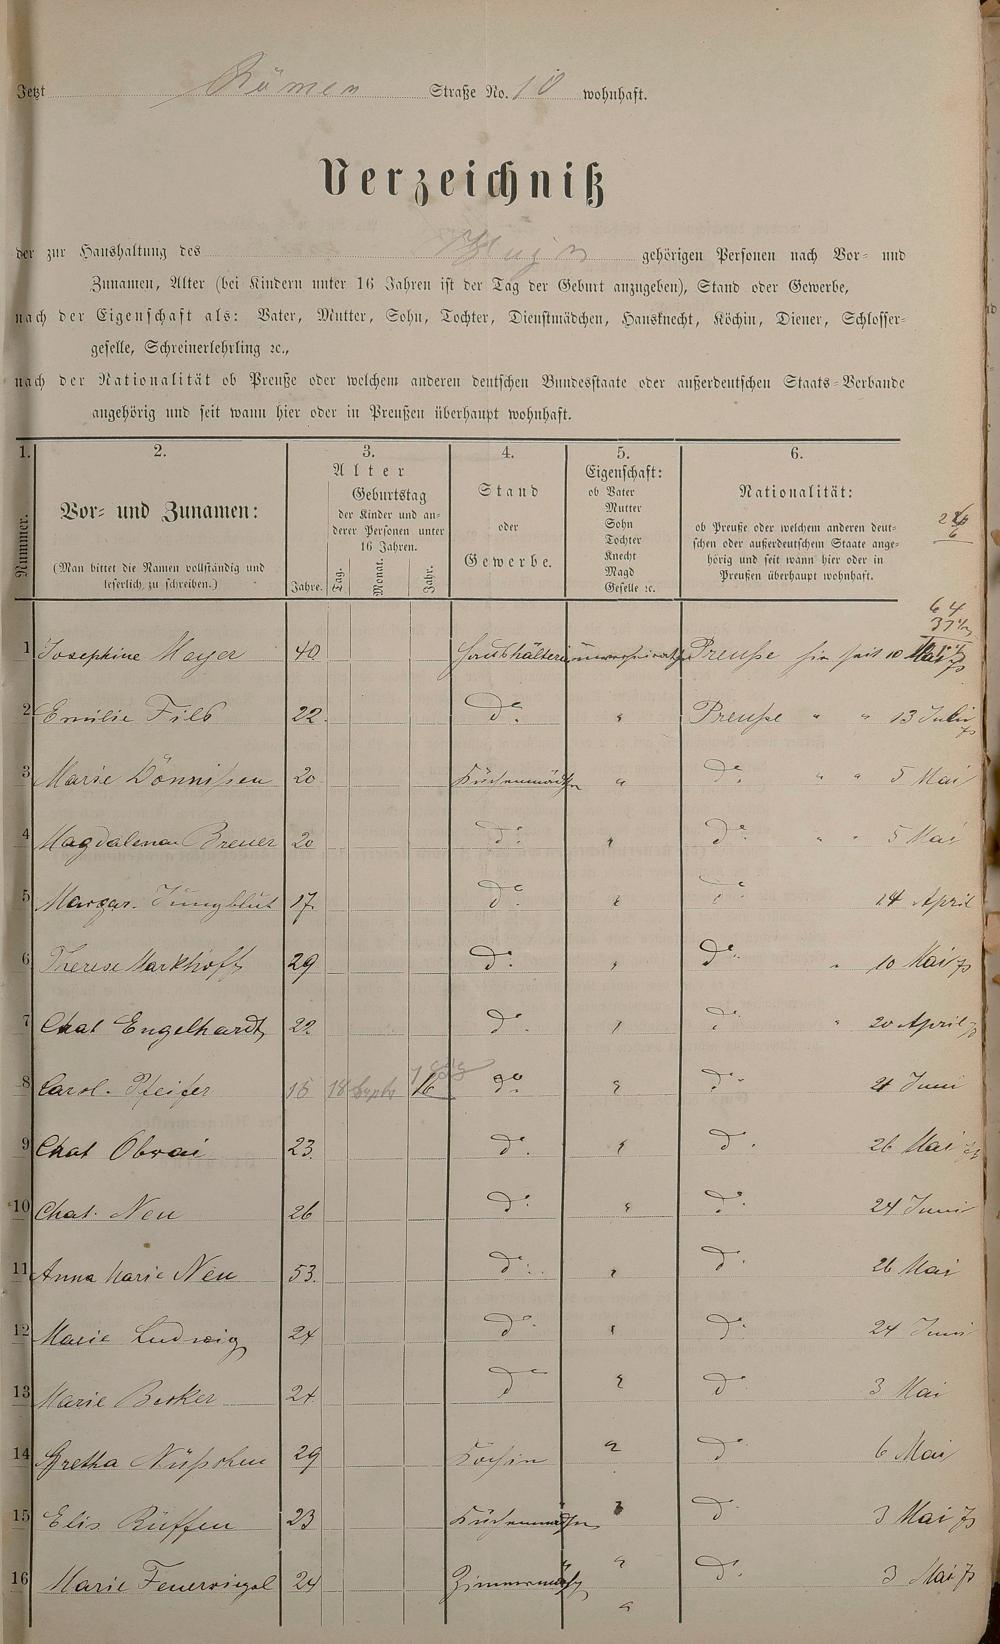 Jetzt Römer Straße No. 10 wohnhaft.
Verzeichniß
der zur Haushaltung des gehörigen Personen nach Vor- und
Zunamen, Alter (bei Kindern unter 16 Jahren ist der Tag der Geburt anzugeben), Stand oder Gewerbe,
nach der Eigenschaft als: Vater, Mutter, Sohn, Tochter, Dienstmädchen, Hausknecht, Köchin, Diener, Schlosser-
geselle, Schreinerlehrling ꝛc.,
nach der Nationalität ob Preuße oder welchem anderen deutschen Bundesstaate oder außerdeutschen Staats-Verbande
angehörig und seit wann hier oder in Preußen überhaupt wohnhaft.
1. 2. 3. 4. 5. 6.
Nummer.
Vor- und Zunamen:
(Man bittet die Namen vollständig und
leserlich zu schreiben.)
Alter
Geburtstag
der Kinder und an-
derer Personen unter
16 Jahren.
Jahre. Tag. Monat. Jahr.
Stand
oder
Gewerbe.
Eigenschaft:
ob Vater
Mutter
Sohn
Tochter
Knecht
Magd
Geselle ꝛc.
Nationalität:
ob Preuße oder welchem anderen deut-
schen oder außerdeutschem Staate ange-
hörig und seit wann hier oder in
Preußen überhaupt wohnhaft.
64
1 Josephine Mayer 40 Haushälterin unverheirathet Preuße hier seit 10 Mai
2 Emilie Fils 22 do " Preuße " " 13 Juli
3 Marie Dönnissen 20 Küchenmädchen " do " " 5 Mai
4 Magdalena Breuer 20 do " do " " 5 Mai
5 Margar. Jungblut 17 do " do 14 April
6 Therese Markhoff 29 do " do " 10 Mai
7 Chat Engelhardt 22 do " do " 20 April
8 Carol. Pfeifer 15 18 Septr do " do 21 Juni
9 Chat Obrai 23. do " do 26 Mai
10 Chat. Neu 26 do " do 24 Juni
11 Anna Marie Neu 53. do " do 26 Mai
12 Marie Ludwig 24 do " do 24 Juni
13 Marie Becker 24 do " do 3 Mai
14 Gretha Nüßchen 29 Köchin " do 6 Mai
15 Elis Rüffen 23 Küchenmädchen " do 3 Mai
16 Marie Feuervigel 24 Zimmermädch " do 3 Mai